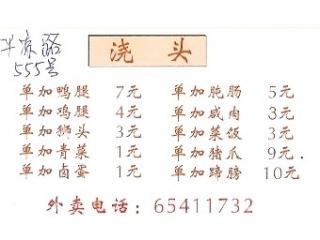 浇头
555号
单加鸭腿 7元 单加肫肠 5元
单加鸡腿 4元 单加咸肉 3元
单加狮头 3元 单加菜饭 3元
单加青菜 1元 单加猪爪 9元
单加卤蛋 1元 单加蹄膀 10元
外卖电话：65411732